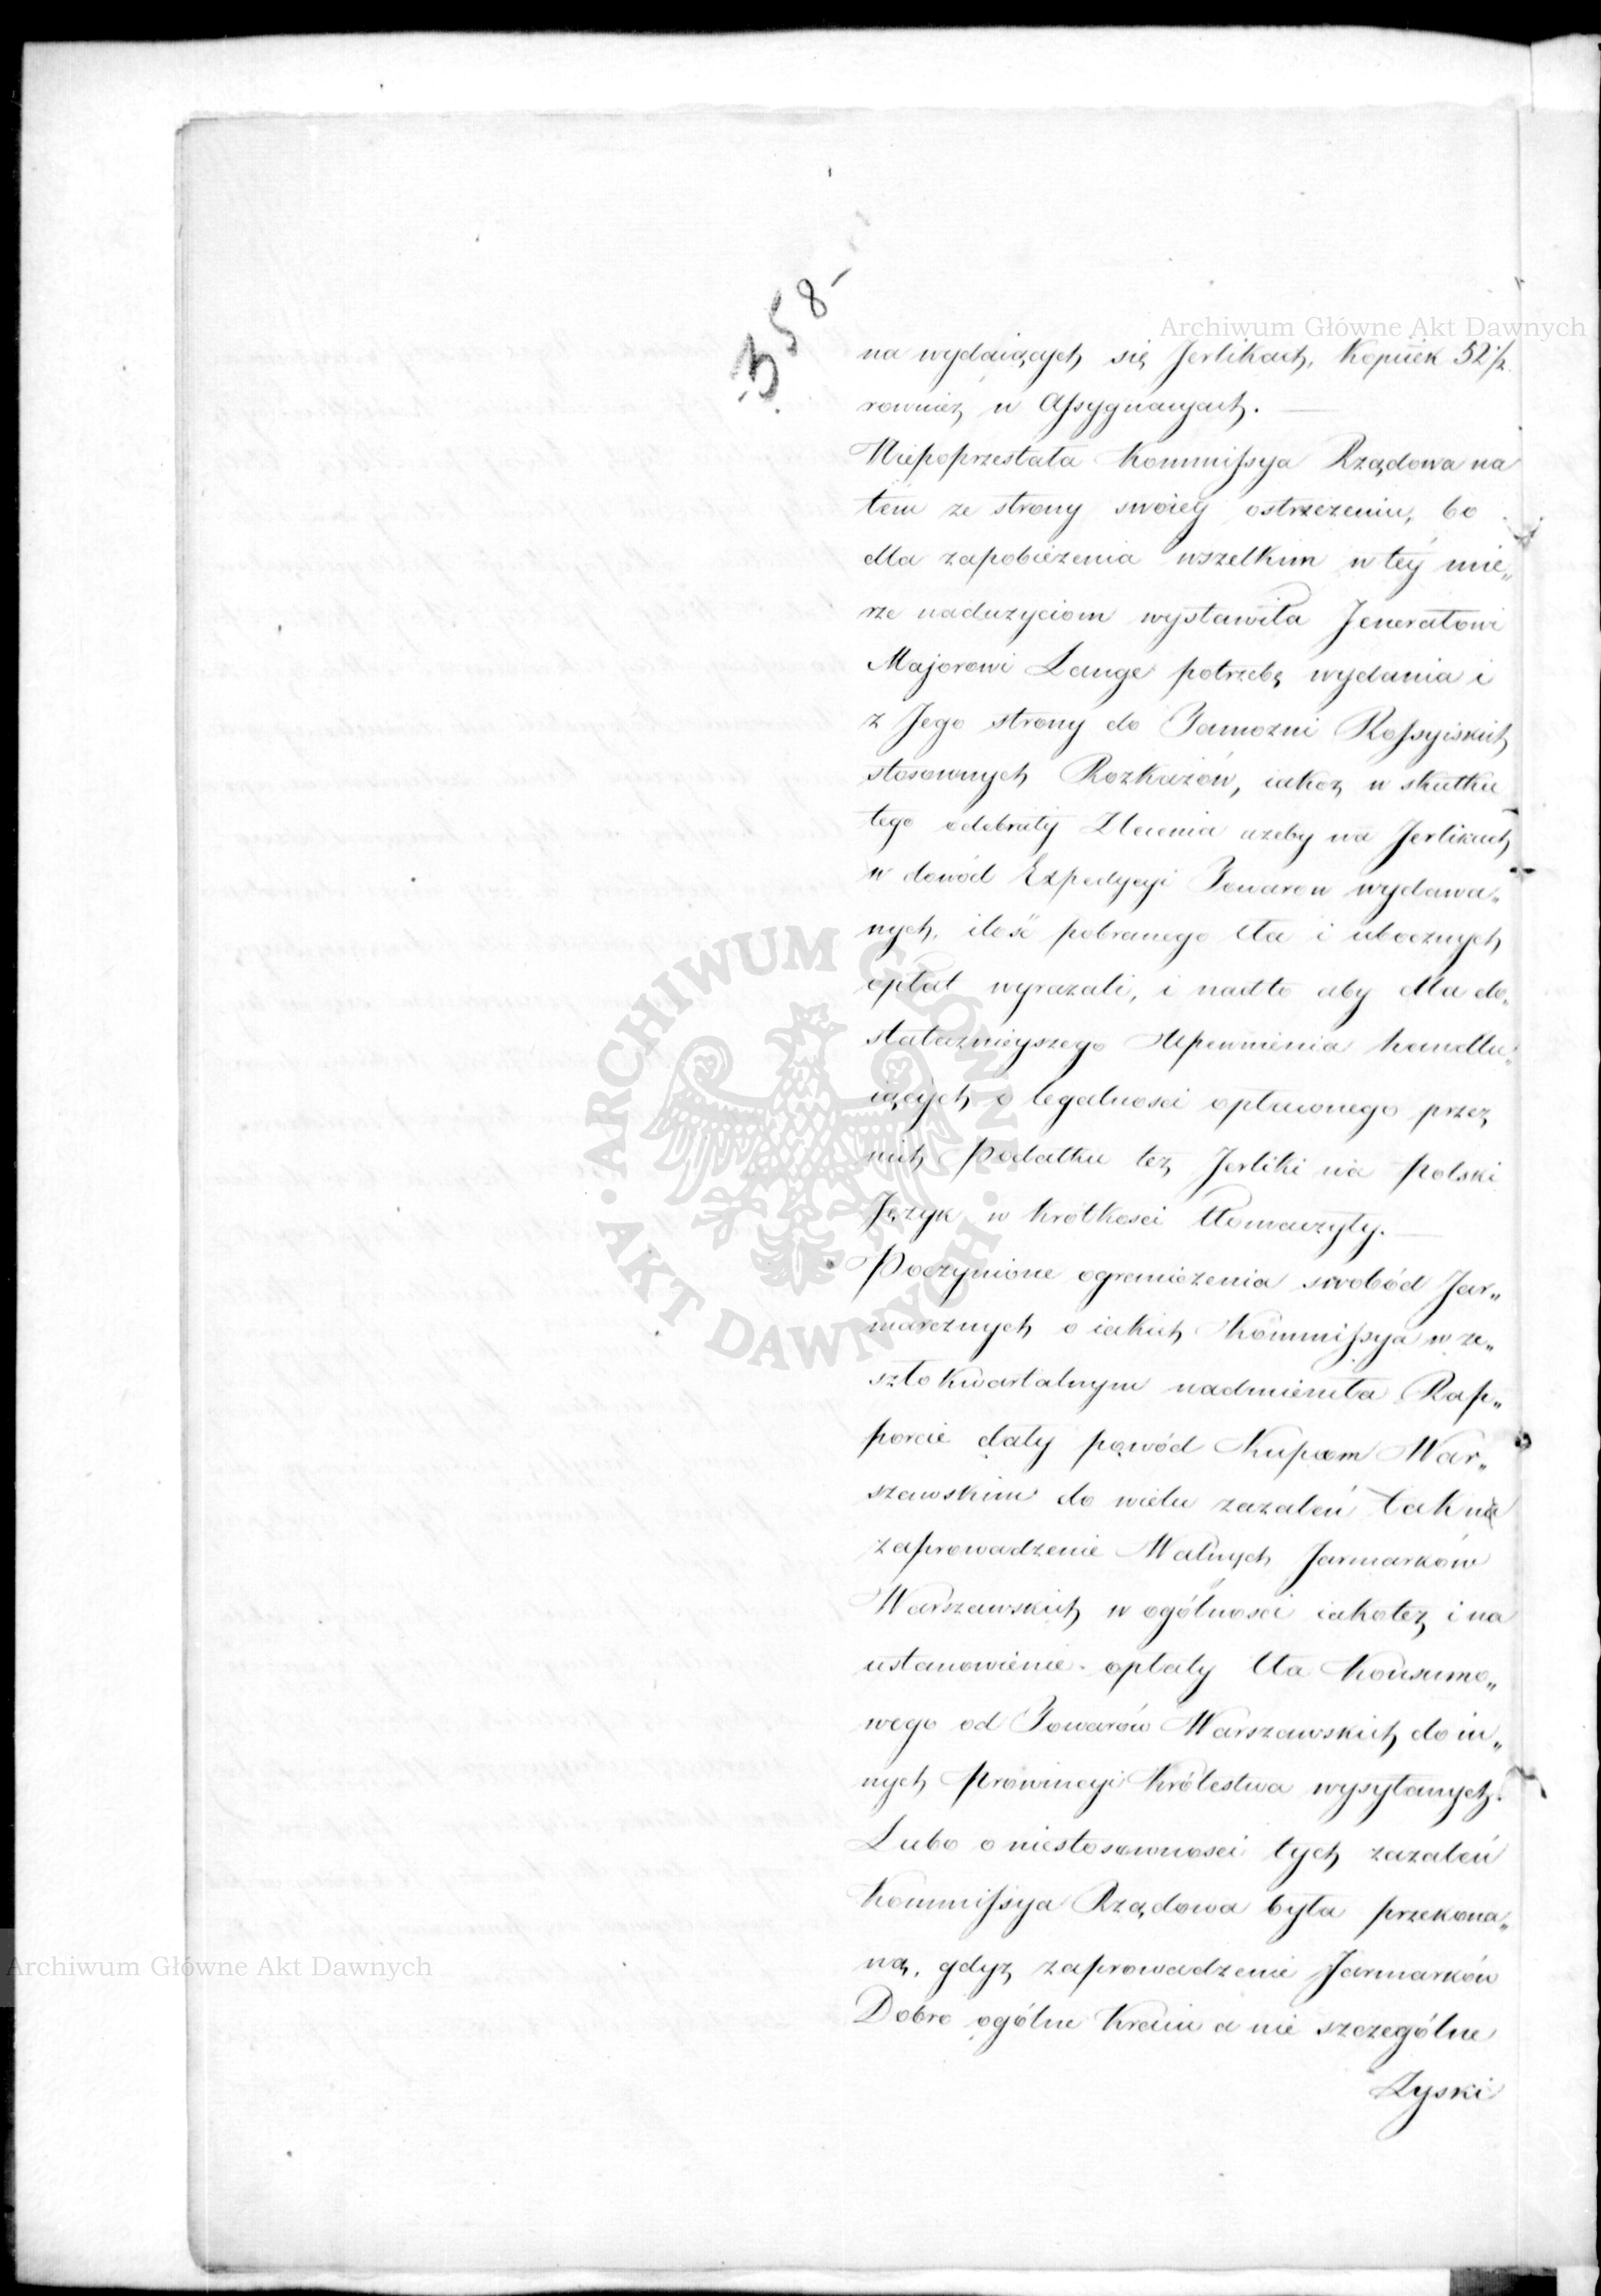 358
Archiwum Główne Akt Dawnych
na wydaiących się Jerlikach, Kopiiek 52 1/2
rownież w Assygnacyach. —
Niepoprzestała Kommissya Rządowa na
tém ze strony swoiey ostrzeżeniu, bo
dla zapobieżenia wszelkim w téy mie„
rze nadużyciom wystawiła Jenerałowi
Majorowi Lange potrzebę wydania i
z Jego strony do Tamożni Rossyiskich
stosownych Rozkazów, iakoż w skutku
tego odebrały Zlecenia ażeby na Jerlikach
w dowód Expedycyi Towarow wydawa„
nych, ilość pobranego Cła i ubocznych
opłat wyrażali, i nadto aby dla do„
statecznieyszego Upewnienia handlu„
iących o legalności opłaconego przez
nich Podatku też Jerliki na Polski
Język w krótkości tłomaczyły. —
Poczynione ograniczenia swobód Jar„
marcznych o iakich Kommissya w ze„
szło kwartalnym nadmieniła Rap„
porcie dały powód Kupcom War„
szawskim do wielu zażaleń tak na
zaprowadzenie Walnych Jarmarków
Warszawskich w ogólności iakoteż i na
ustanowienie opłaty Cła Konsumo„
wego od Towarów Warszawskich do in„
nych Prowincyi Królestwa wysyłanych.
Lubo o niestosowności tych zażaleń
Kommissya Rządowa była przekona„
ną, gdyż zaprowadzenie Jarmarków
Dobro ogólne Kraiu a nie szczególne
Zyski
ARCHIWUM GŁÓWNE · AKT DAWNYCH ·
Archiwum Główne Akt Dawnych